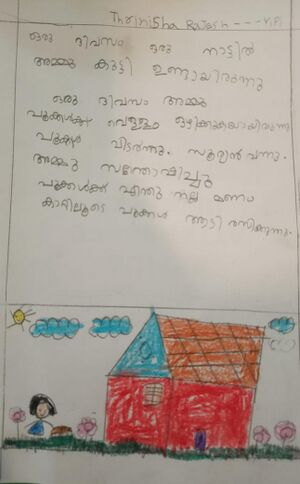 Thrinisha Rajesh --- V.P.
ഒരു ദിവസം ഒരു നാട്ടിൽ
അമ്മു കുട്ടി ഉണ്ടായിരുന്നു
ഒരു ദിവസം അമ്മു
പൂക്കൾക്ക് വെള്ളം ഒഴിക്കുകയായിരുന്നു
പൂക്കൾ വിടർന്നു. സൂര്യൻ വന്നു.
അമ്മു സന്തോഷിച്ചു
പൂക്കൾക്ക് എന്തു നല്ല മണം
കാറ്റിലൂടെ പൂക്കൾ ആടി രസിക്കുന്നു.